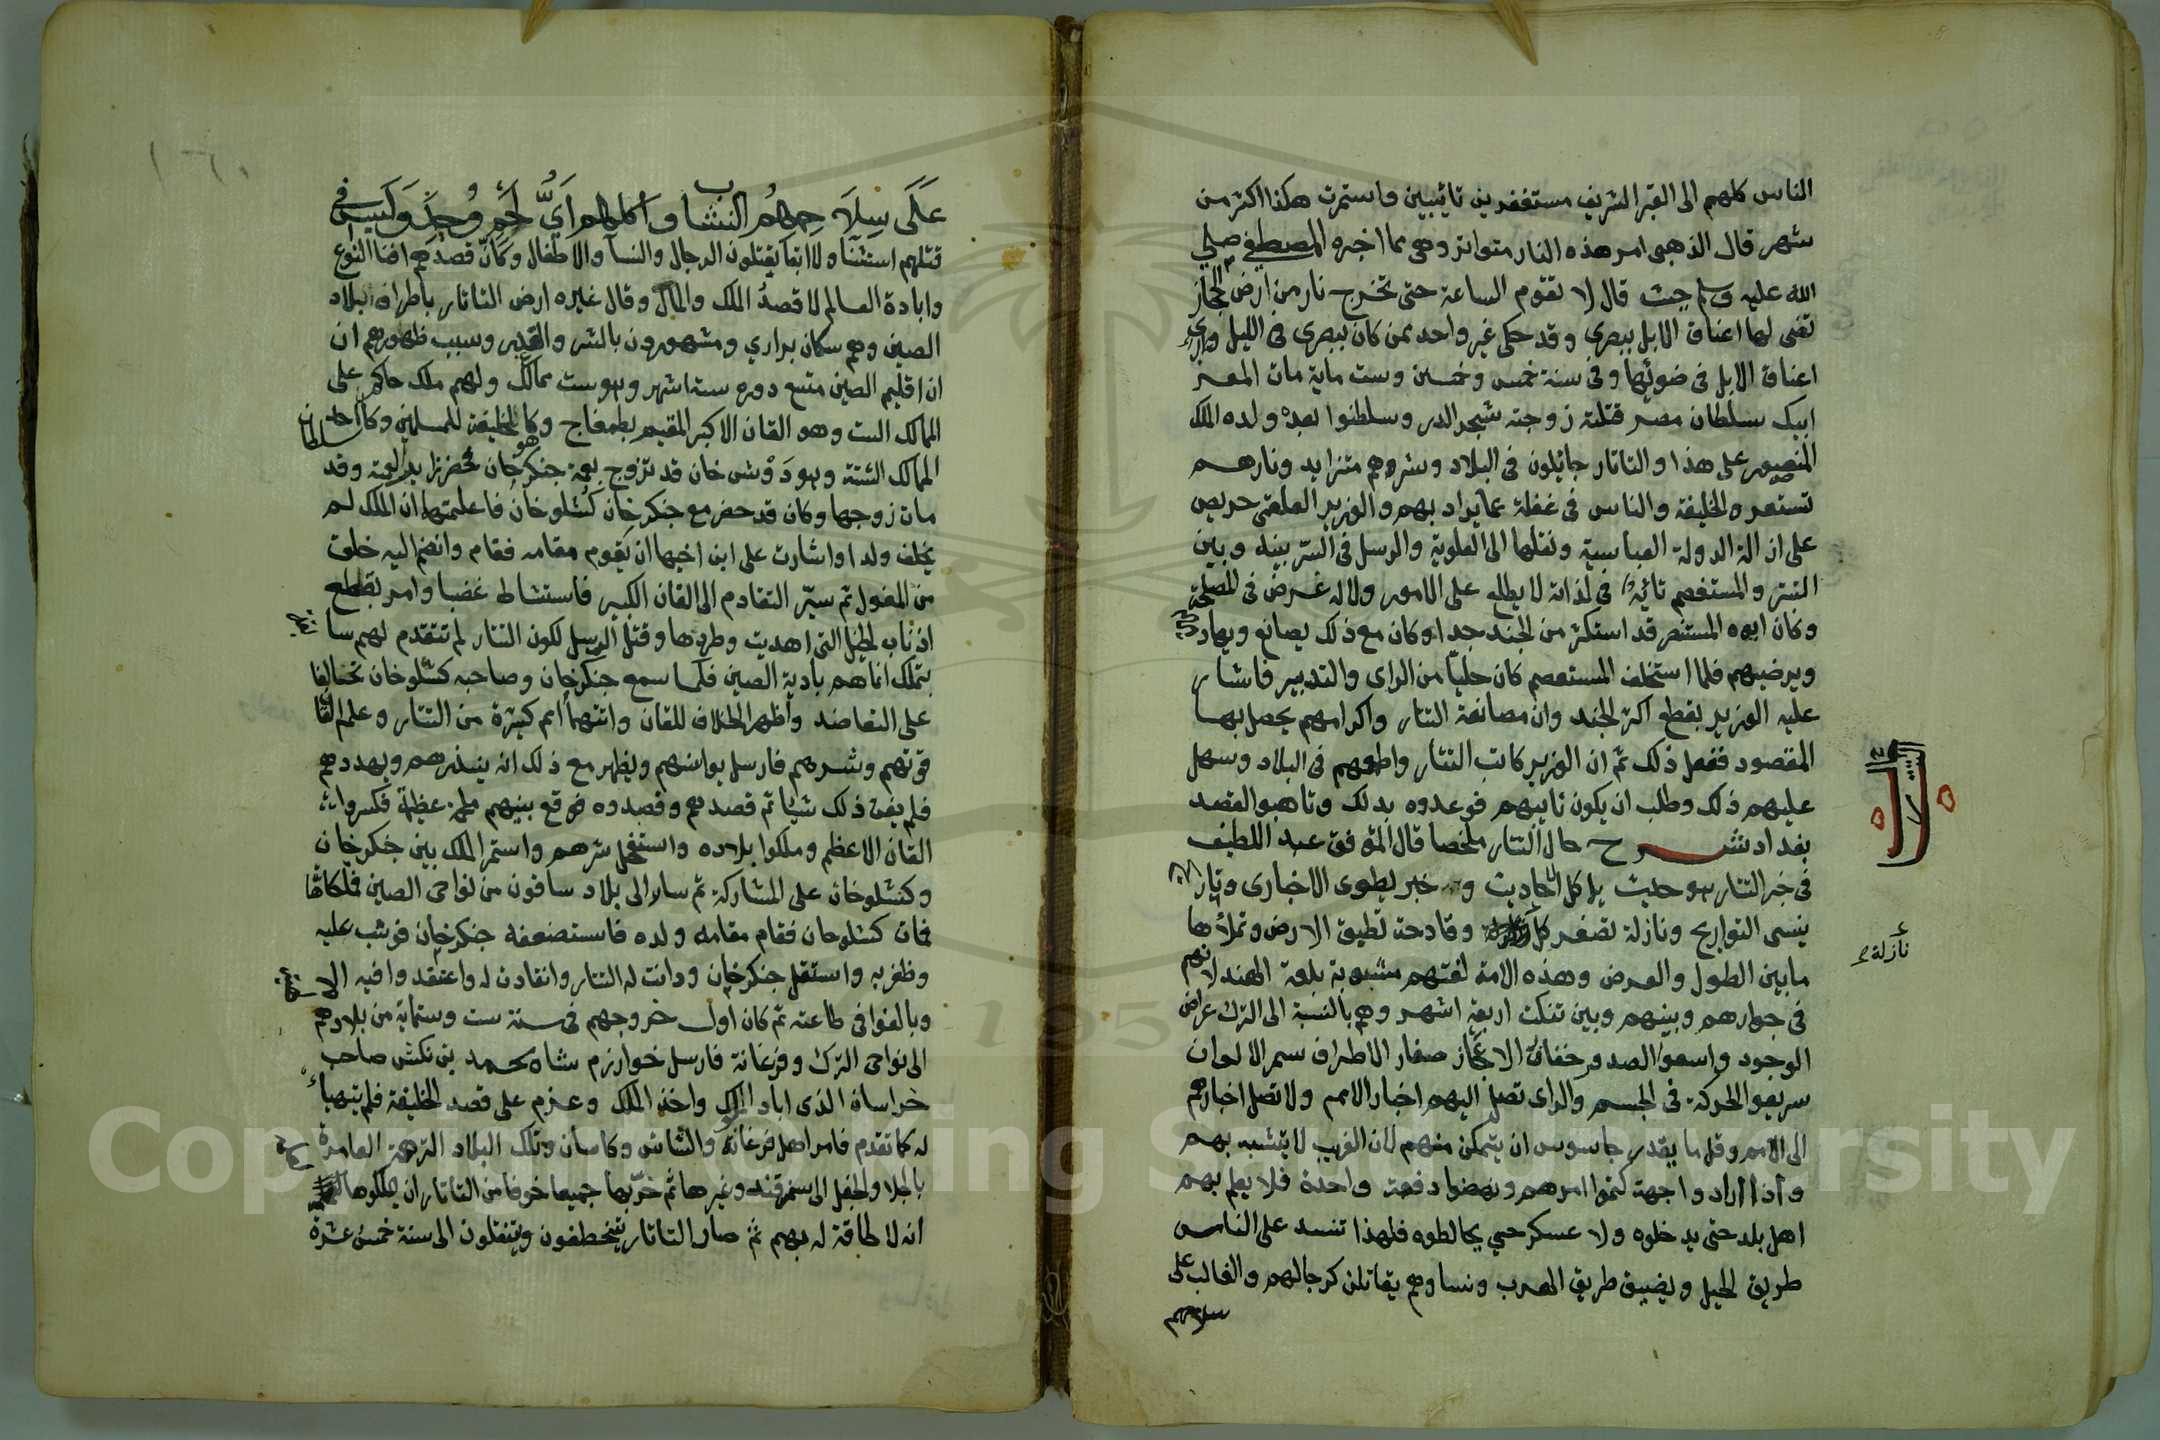 الناس كلهم الى القبر الشريف مستغفرين تائبين واستمرت هكذا اكثر من
شهر قال الذهبى امر هذه النار متواتر وهى مما اخبره المصطفى صلى
الله عليه وسلم حيث قال لا تقوم الساعة حتى تخرج نار من ارض الحجاز
تضى لها اعناق الابل ببصرى وقد حكى غير واحد ممن كان ببصرى فى الليل وراى
اعناق الابل فى ضوئها وفى سنة خمس وخمسين وست ماية مات المعز
ايبك سلطان مصر قتلته زوجته شجر الدر وسلطنوا بعده ولده الملك
المنصور على هذا والتاتار جائلون فى البلاد وشرهم متزايد ونارهم
تستعر والخليفة والناس فى غفلة عما يراد بهم والوزير العلقمى حريص
على ازالة الدولة العباسية ونقلها الى العلوية والرسل فى السر بينه وبين
التتر والمستعصم تائه فى لذاته لا يطلع على الامور ولا له غرض فى المصلحة
وكان ابوه المستنصر قد استكثر من الجند جدا وكان مع ذلك يصانع ويهادى
ويرضيهم فلما استخلف المستعصم كان خليا من الراى والتدبير فاشار
عليه الوزير بقطع اكثر الجند وان مصانعة التتار واكرامهم يحصل بها
المقصود ففعل ذلك ثم ان الوزير كاتب التتار واطمعهم فى البلاد وسهل
عليهم ذلك وطلب ان يكون نايبهم فوعدوه بذلك وتاهبوا لقصد
بغداد شرح حال التتار ملخصا قال الموفق عبد اللطيف
فى خبر التتار هو حديث ياكل الاحاديث وخبر يطوى الاخبار وتاريخ
ينسى التواريخ ونازلة تصغر كل نازلة وفادحة تطبق الارض وتملأها
ما بين الطول والعرض وهذه الامة لغتهم مشوبة بلغة الهند لانهم
فى جوارهم وبينهم وبين تنكت اربعة اشهر وهم بالنسبة الى الترك عراض
الوجوه واسعوا الصدور خفاف الاعجاز صغار الاطراف سمر الالوان
سريعوا الحركة فى الجسم والراى تصل اليهم اخبار الامم ولا تصل اخبارهم
الى الامم وقل ما يقدر جاسوس ان يتمكن منهم لان الغريب لا يتشبه بهم
واذا اراد واجهة كتموا امرهم ونهضوا دفعة واحدة فلا يعلم بهم
اهل بلد حتى يدخلوه ولا عسكر حتى يخالطوه فلهذا تنسد على الناس
طريق الحيل ويضيق طريق الهرب ونساوهم يقاتلن كرجالهم والغالب على
سلاحهم
نازلة
على سلاحهم النشاب واكلهم اى لحم وجد وليس فى
قتلهم استثنا ولا ابقا يقتلون الرجال والنسا والاطفال وكان قصدهم افنا النوع
وابادة العالم لا قصد الملك والمال وقال غيره ارض التاتار باطراف بلاد
الصين وهم سكان برارى ومشهورون بالشر والغدر وسبب ظهورهم ان
ان اقليم الصين متسع دوره ستة اشهر وهو ست ممالك ولهم ملك حاكم على
الممالك الست وهو القان الاكبر المقيم بطمغاج وهو كالخليفة للمسلمين وكان احد سلطان
الممالك الستة وهو دوش خان قد تزوج بعمة جنكزخان فحضر زايرا لعمته وقد
مات زوجها وكان قد حضر مع جنكزخان كشلوخان فاعلمتهما ان الملك لم
يخلف ولدا واشارت على ابن اخيها ان يقوم مقامه فقام وانضم اليه خلق
من المغول ثم سير التقادم الى القان الكبير فاستشاط غضبا وامر بقطع
اذناب الخيل التى اهديت وطردها وقتل الرسل لكون التتار لم تتقدم لهم سابقة
بتملك انما هم بادية الصين فلما سمع جنكزخان وصاحبه كشلوخان تحالفا
على التعاضد واظهرا الخلاف للقان واتتهما امم كثيرة من التتار وعلم القان
قوتهم وشرهم فارسل يوانسهم ويظهر مع ذلك انه ينذرهم ويهددهم
فلم يغن ذلك شيا ثم قصدهم وقصدوه فوقع بينهم ملحمة عظيمة فكسروا
القان الاعظم وملكوا بلاده واستفحل شرهم واستمر الملك بين جنكزخان
وكشلوخان على المشاركة ثم سارا الى بلاد ساقون من نواحى الصين فملكاها
فمات كشلوخان فقام مقامه ولده فاستضعفه جنكزخان فوثب عليه
وظفر به واستقل جنكزخان ودانت له التتار وانقادت له واعتقدوا فيه الالهية
وبالغوا فى طاعته ثم كان اول خروجهم فى سنة ست وستماية من بلادهم
الى نواحى الترك وفرغانة فارسل خوارزم شاه محمد بن تكش صاحب
خراسان الذى اباد الملوك واخذ الممالك وعزم على قصد الخليفة فلم يتهيأ
له كما تقدم فامر اهل فرغانة والشاش وكاسان وتلك البلاد النزهة العامرة
بالجلا والجفل الى سمرقند وغيرها ثم خربها جميعا خوفا من التاتار ان يملكوها
انه لا طاقة له بهم ثم صار التاتار يتخطفون ويتنقلون الى سنة خمس عشرة